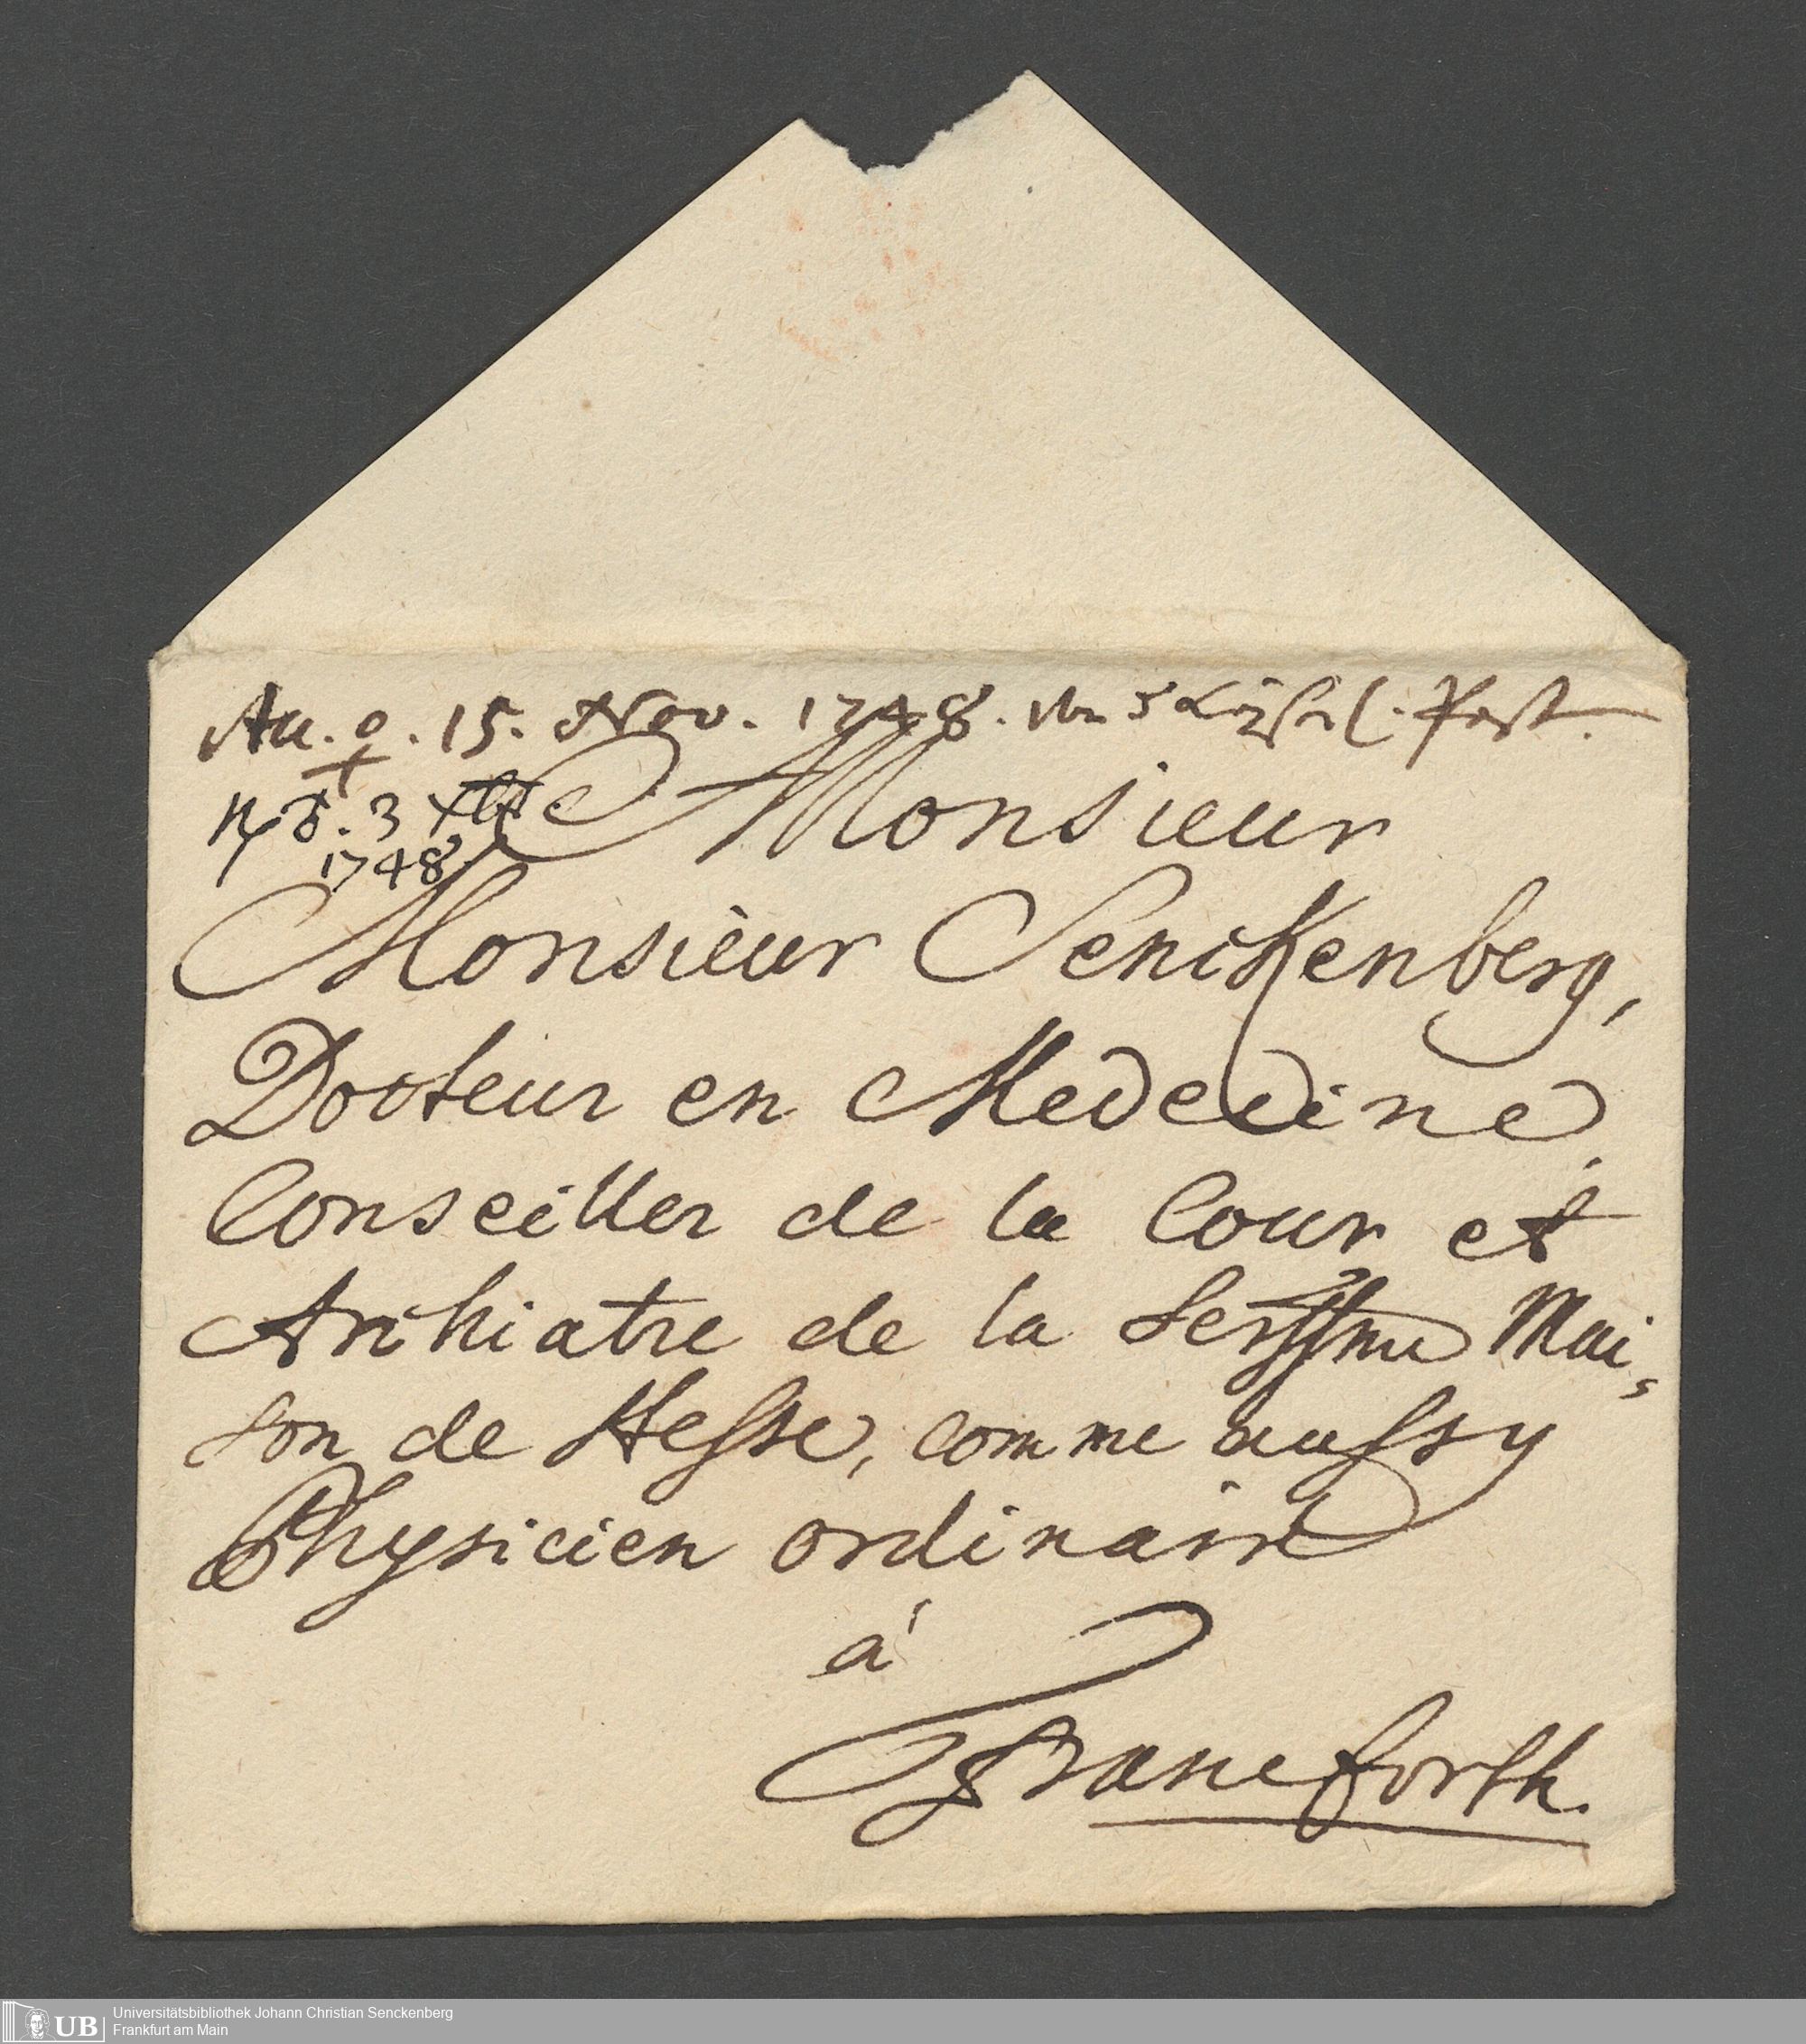 Au. ♀. 15. Nov. 1748. Post.
3 Xbr
1748.
A Monsieur
Monsieur Senckenberg,
Docteur en Medecine,
Conseiller de la Cour et
Archiatre de la Serssme Mai,
son de Hesse, comme aussy
Physicien ordinaire
à
Francforth.
UB Universitätsbibliothek Johann Christian Senckenberg
Frankfurt am Main